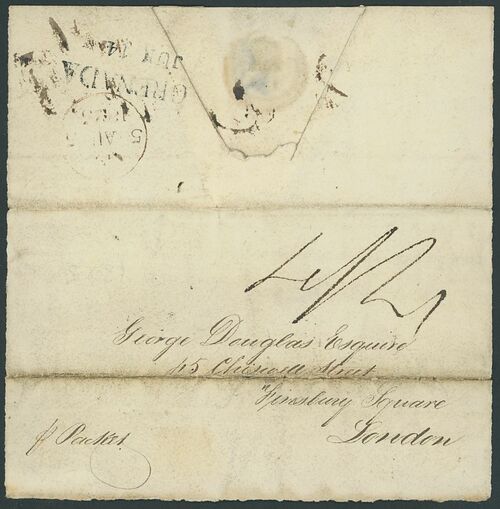 GRENADA
JUY 14
5
AU
George Douglas Esquire
45 Chiswell Street
Finsbury Square
London
p Packet